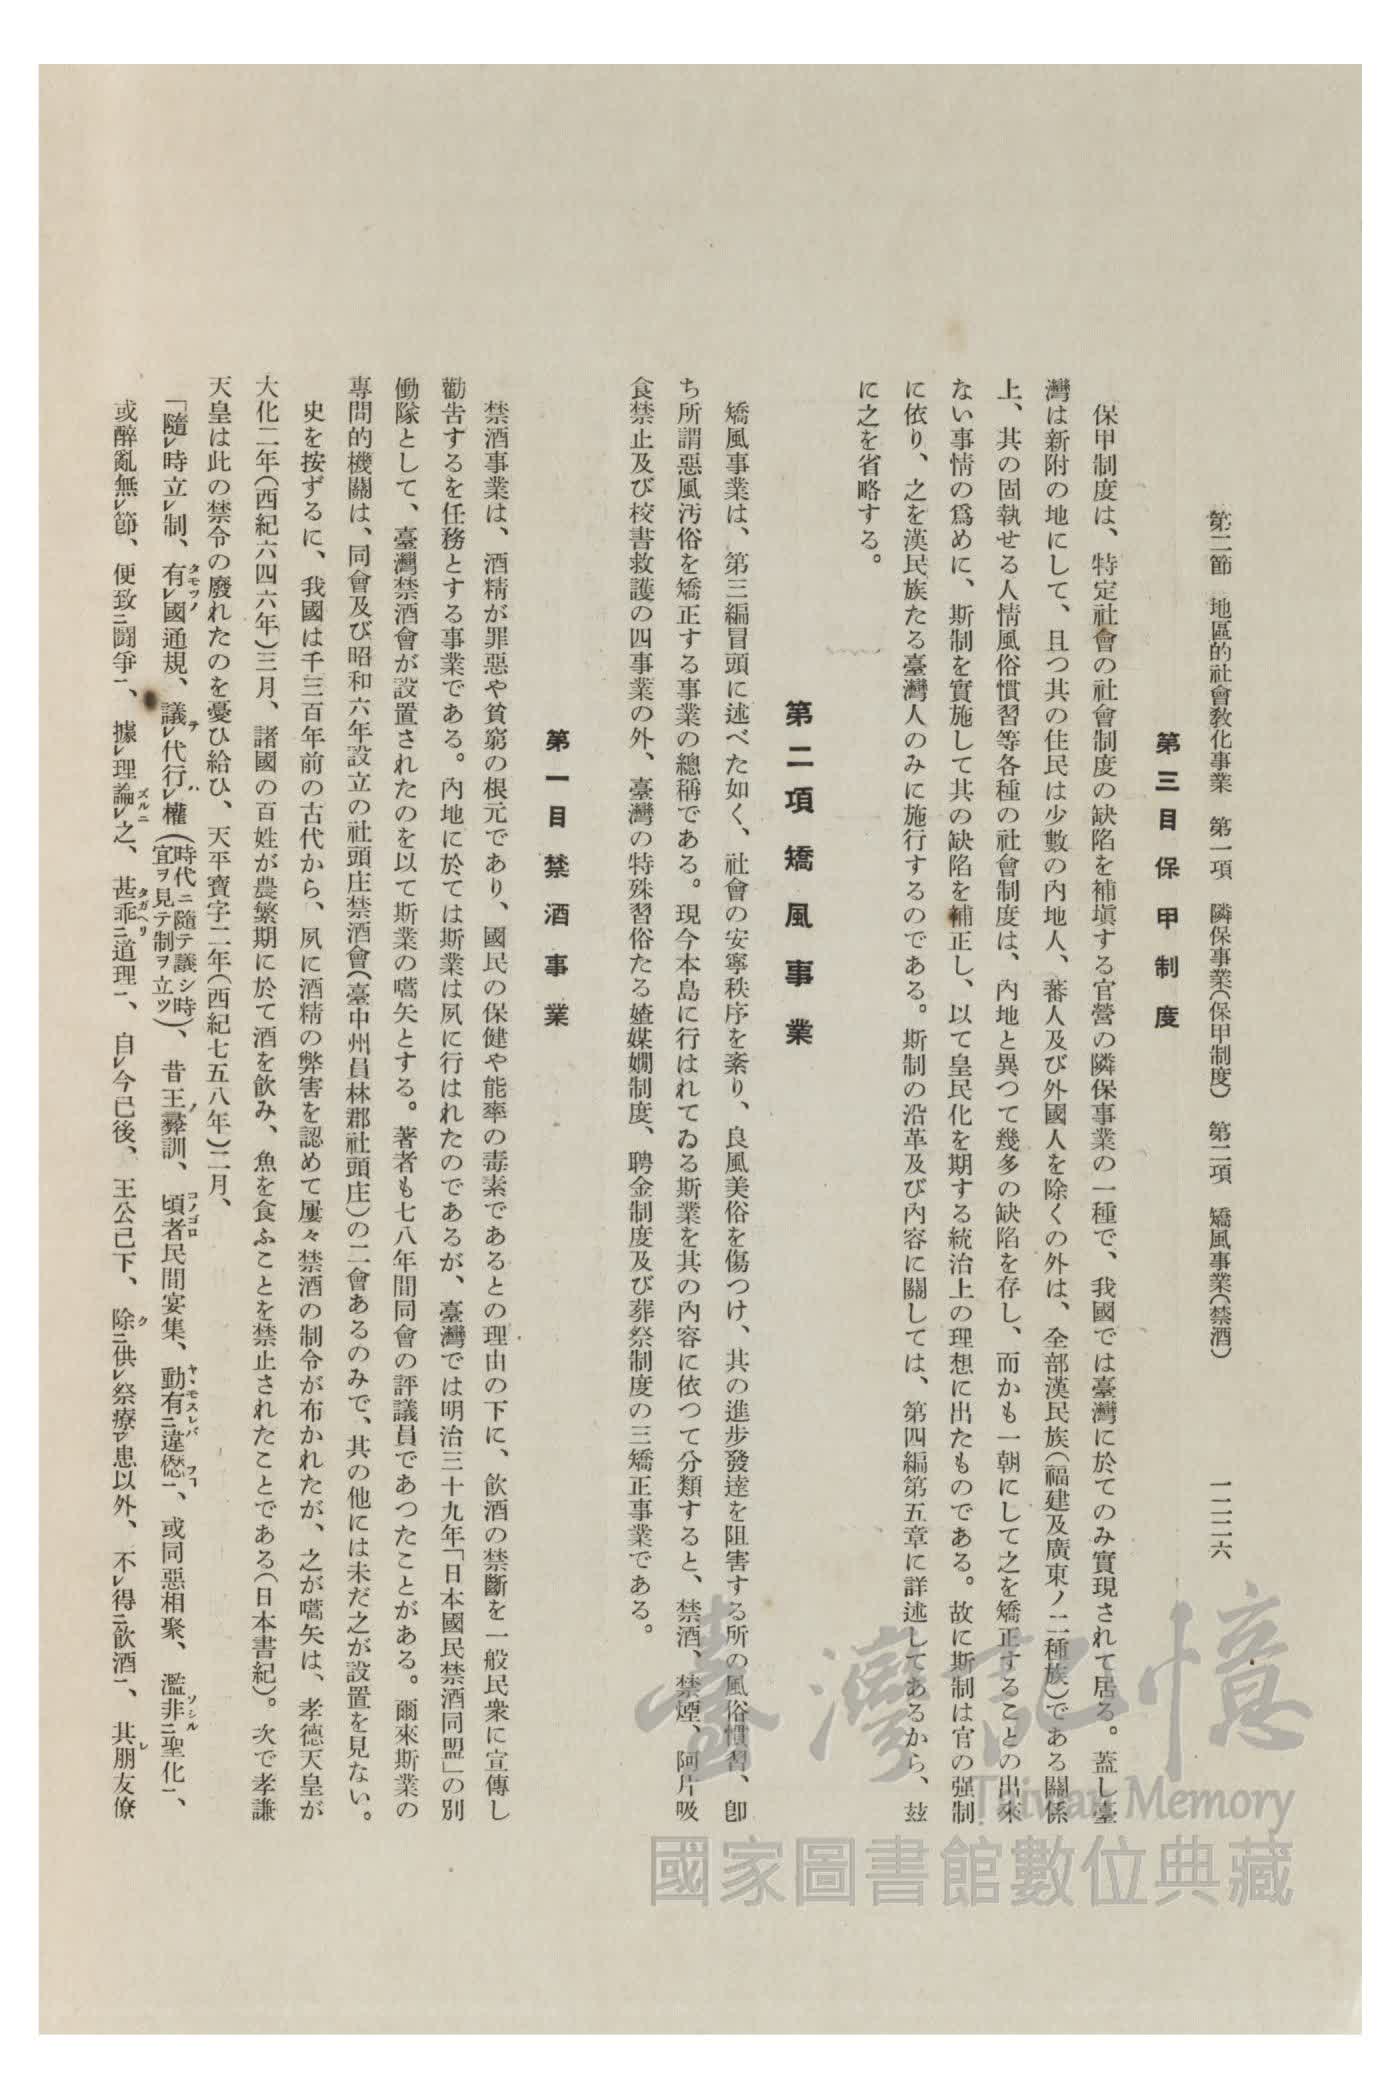 第二節　地區的社會敎化事業　第一項　隣保事業(保甲制度)　第二項　矯風事業(禁酒)　一二二六
第三目　保甲制度
保甲制度は、特定社會の社會制度の缺陷を補塡する官營の隣保事業の一種で、我國では臺灣に於てのみ實現されて居る。蓋し臺
灣は新附の地にして、且つ其の住民は少數の內地人、蕃人及び外國人を除くの外は、全部漢民族(福建及廣東ノ二種族)である關係
上、其の固執せる人情風俗慣習等各種の社會制度は、內地と異つて幾多の缺陷を存し、而かも一朝にして之を矯正することの出來
ない事情の爲めに、斯制を實施して其の缺陷を補正し、以て皇民化を期する統治上の理想に出たものである。故に斯制は官の强制
に依り、之を漢民族たる臺灣人のみに施行するのである。斯制の沿革及び內容に關しては、第四編第五章に詳述してあるから、玆
に之を省略する。
第二項　矯風事業
矯風事業は、第三編冒頭に述べた如く、社會の安寧秩序を紊り、良風美俗を傷つけ、其の進步發達を阻害する所の風俗慣習、卽
ち所謂惡風汚俗を矯正する事業の總稱である。現今本島に行はれてゐる斯業を其の內容に依つて分類すると、禁酒、禁煙、阿片吸
食禁止及び校書救護の四事業の外、臺灣の特殊習俗たる媎媒嫺制度、聘金制度及び葬祭制度の三矯正事業である。
第一目　禁酒事業
禁酒事業は、酒精が罪惡や貧窮の根元であり、國民の保健や能率の毒素であるとの理由の下に、飮酒の禁斷を一般民衆に宣傳し
勸告するを任務とする事業である。內地に於ては斯業は夙に行はれたのであるが、臺灣では明治三十九年「日本國民禁酒同盟」の別
働隊として、臺灣禁酒會が設置されたのを以て斯業の嚆矢とする。著者も七八年間同會の評議員であつたことがある。爾來斯業の
專問的機關は、同會及び昭和六年設立の社頭庄禁酒會(臺中州員林郡社頭庄)の二會あるのみで、其の他には未だ之が設置を見ない。
史を按ずるに、我國は千三百年前の古代から、夙に酒精の弊害を認めて屢々禁酒の制令が布かれたが、之が嚆矢は、孝德天皇が
大化二年(西紀六四六年)三月、諸國の百姓が農繁期に於て酒を飮み、魚を食ふことを禁止されたことである(日本書紀)。次で孝謙
天皇は此の禁令の廢れたのを憂ひ給ひ、天平寶字二年(西紀七五八年)二月、
「隨レ時立レ制、有レ國通規、議レ代行レ權(時代ニ隨テ議シ時宜ヲ見テ制ヲ立ツ)、昔王彜訓、頃者民間宴集、動有ニ違愆一、或同惡相聚、濫非ニ聖化一、
或醉亂無レ節、便致ニ鬪爭一、據レ理論レ之、甚乖ニ道理一、自レ今已後、王公已下、除ニ供レ祭療レ患以外、不レ得ニ飮酒一、其朋友僚
臺灣記憶
Taiwan Memory
國家圖書館數位典藏